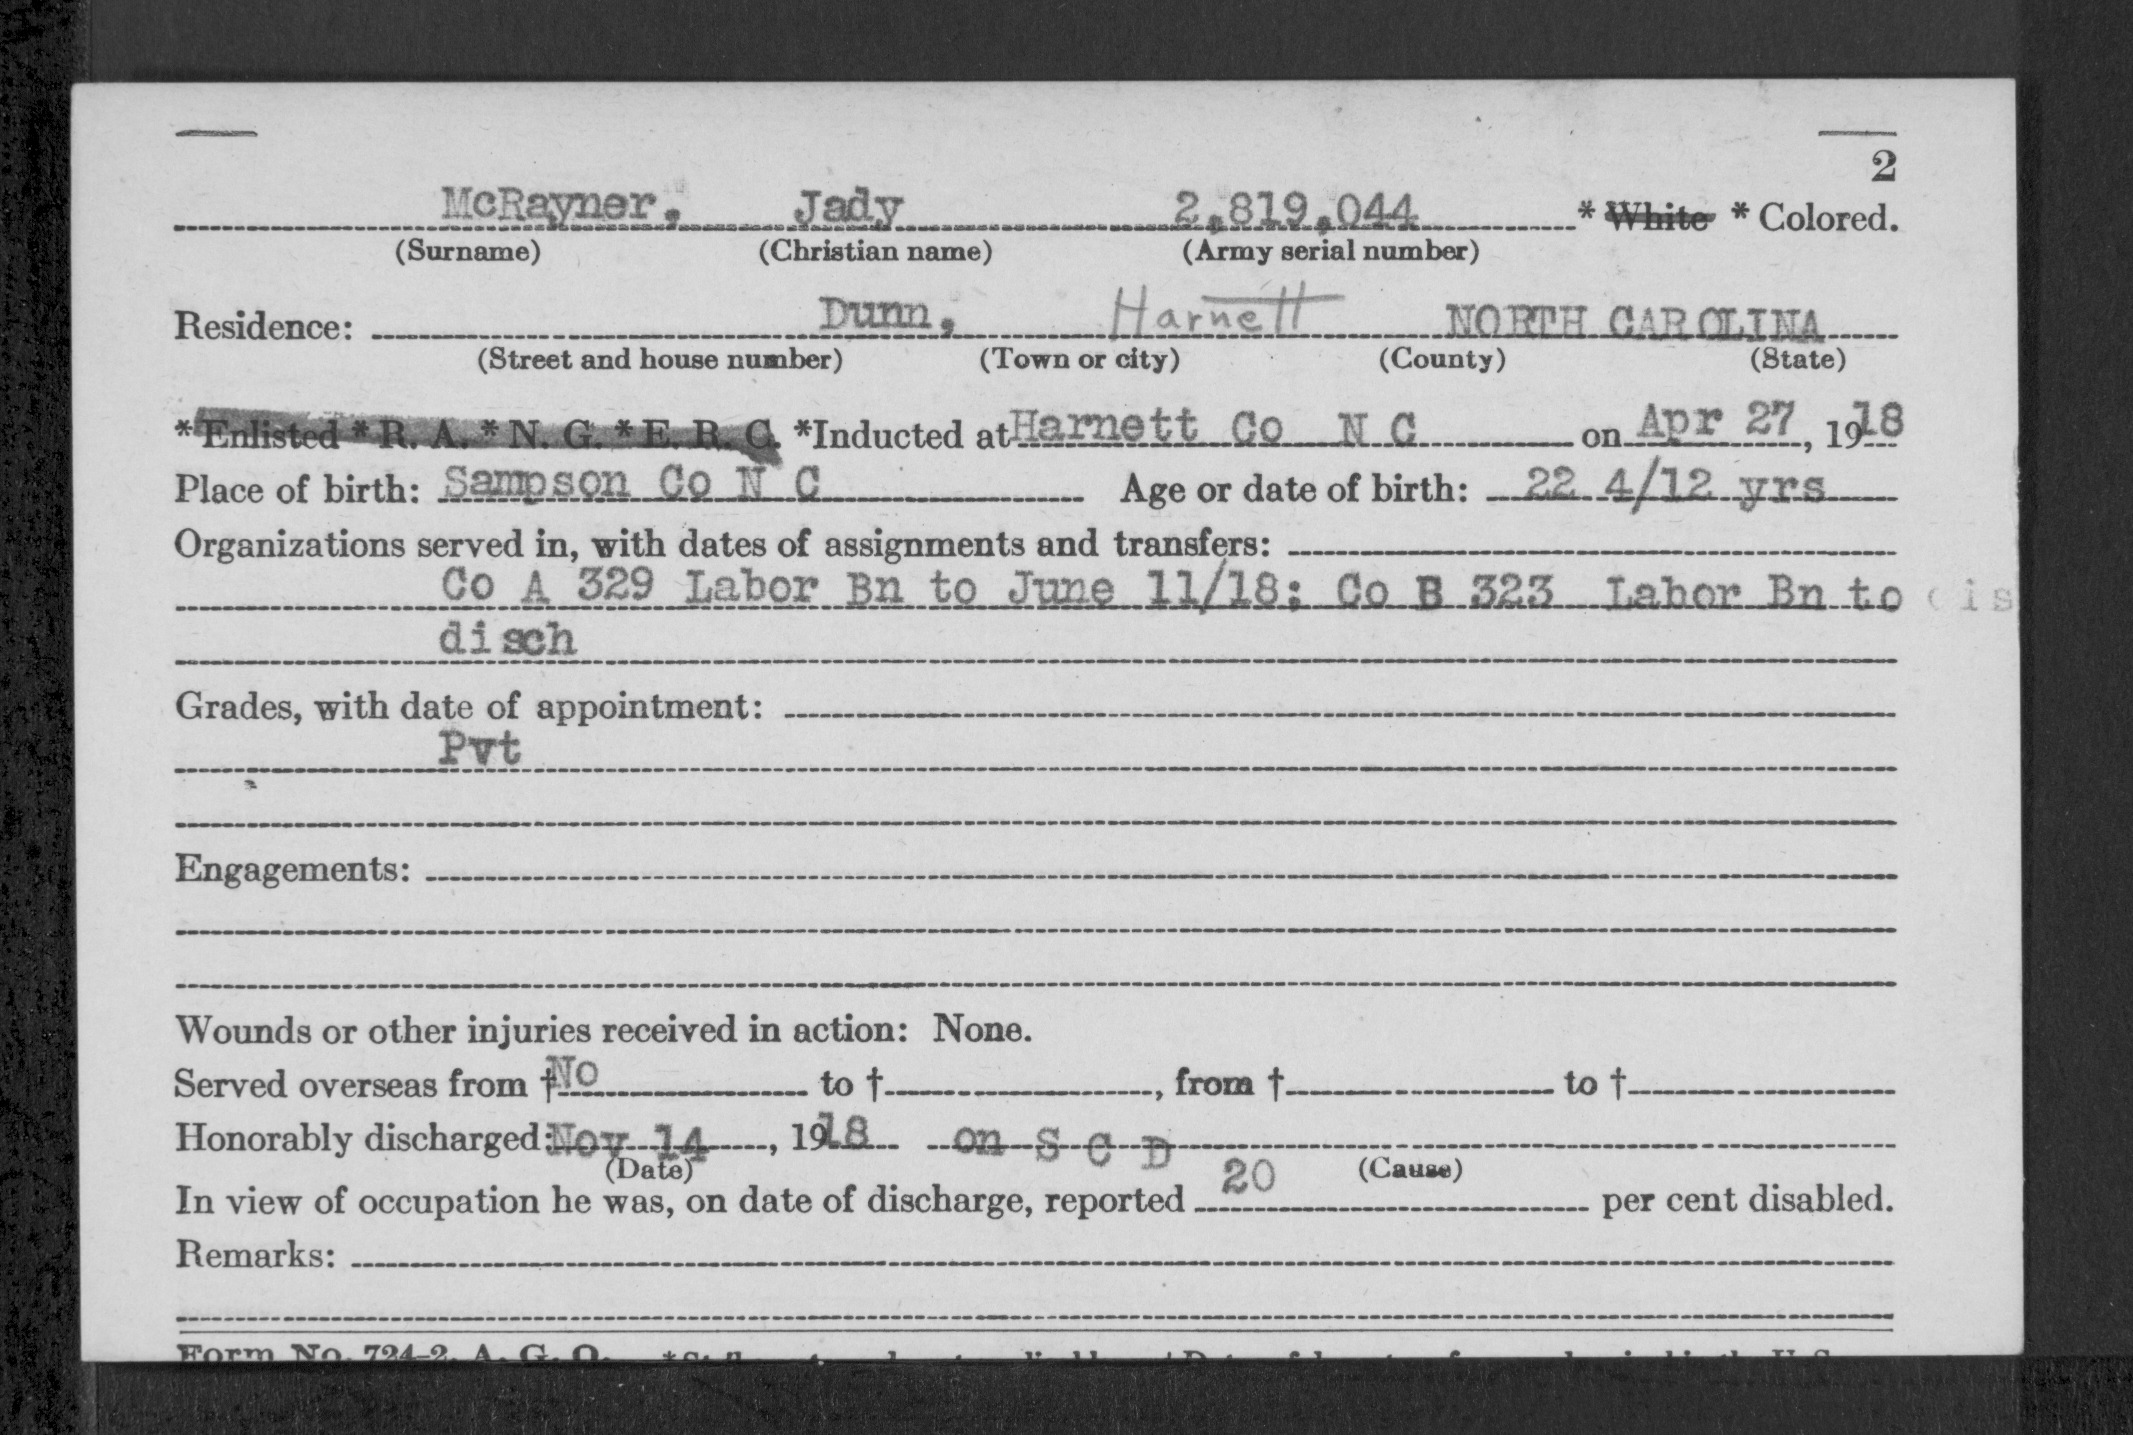 2
McRayner, Jady 2,819,044 * White * Colored.
(Surname) (Christian name) (Army serial number)
Residence: Dunn, Harnett NORTH CAROLINA
(Street and house number) (Town or city) (County) (State)
*Enlisted *R. A. *N. G. *E. R. C. *Inducted at Harnett Co N C on Apr 27, 1918
Place of birth: Sampson Co N C Age or date of birth: 22 4/12 yrs
Organizations served in, with dates of assignments and transfers:
Co A 329 Labor Bn to June 11/18; Co B 323 Labor Bn to dis
disch
Grades, with date of appointment:
Pvt
Engagements:
Wounds or other injuries received in action: None.
Served overseas from † No to †, from † to †
Honorably discharged: Nov 14, 1918 on S C D
(Date) (Cause)
In view of occupation he was, on date of discharge, reported 20 per cent disabled.
Remarks:
Form No. 724-2, A. G. O.